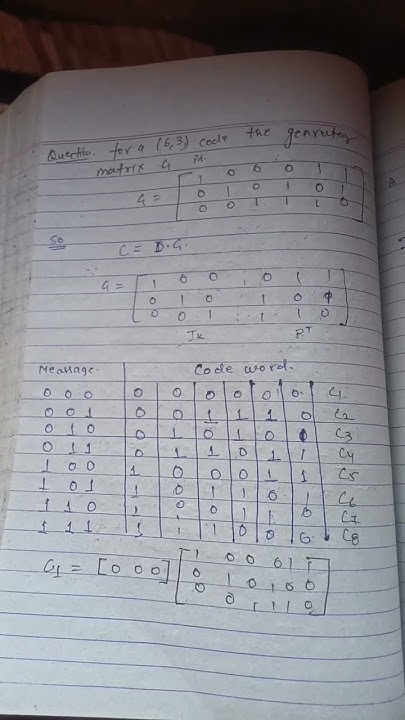 Question. for a (6,3) code the genrator
matrix G is.
1 0 0 0 1 1
G = 0 1 0 1 0 1
0 0 1 1 1 0
So
C = D.G.
1 0 0 : 0 1 1
G = 0 1 0 : 1 0
0 0 1 : 1 1 0
Ik PT
Meassage. Code word.
0 0 0 0 0 0 0 0 0. C1
0 0 1 0 0 1 1 1 0 C2
0 1 0 0 1 0 1 0 C3
0 1 1 0 1 1 0 1 1 C4
1 0 0 1 0 0 0 1 1 C5
1 0 1 1 0 1 1 0 1 C6
1 1 0 1 0 0 1 1 0 C7
1 1 1 1 1 1 0 0 0 C8
1 0 0 0 1 1
C1 = [0 0 0] 0 1 0 1 0 0
0 0 1 1 1 0